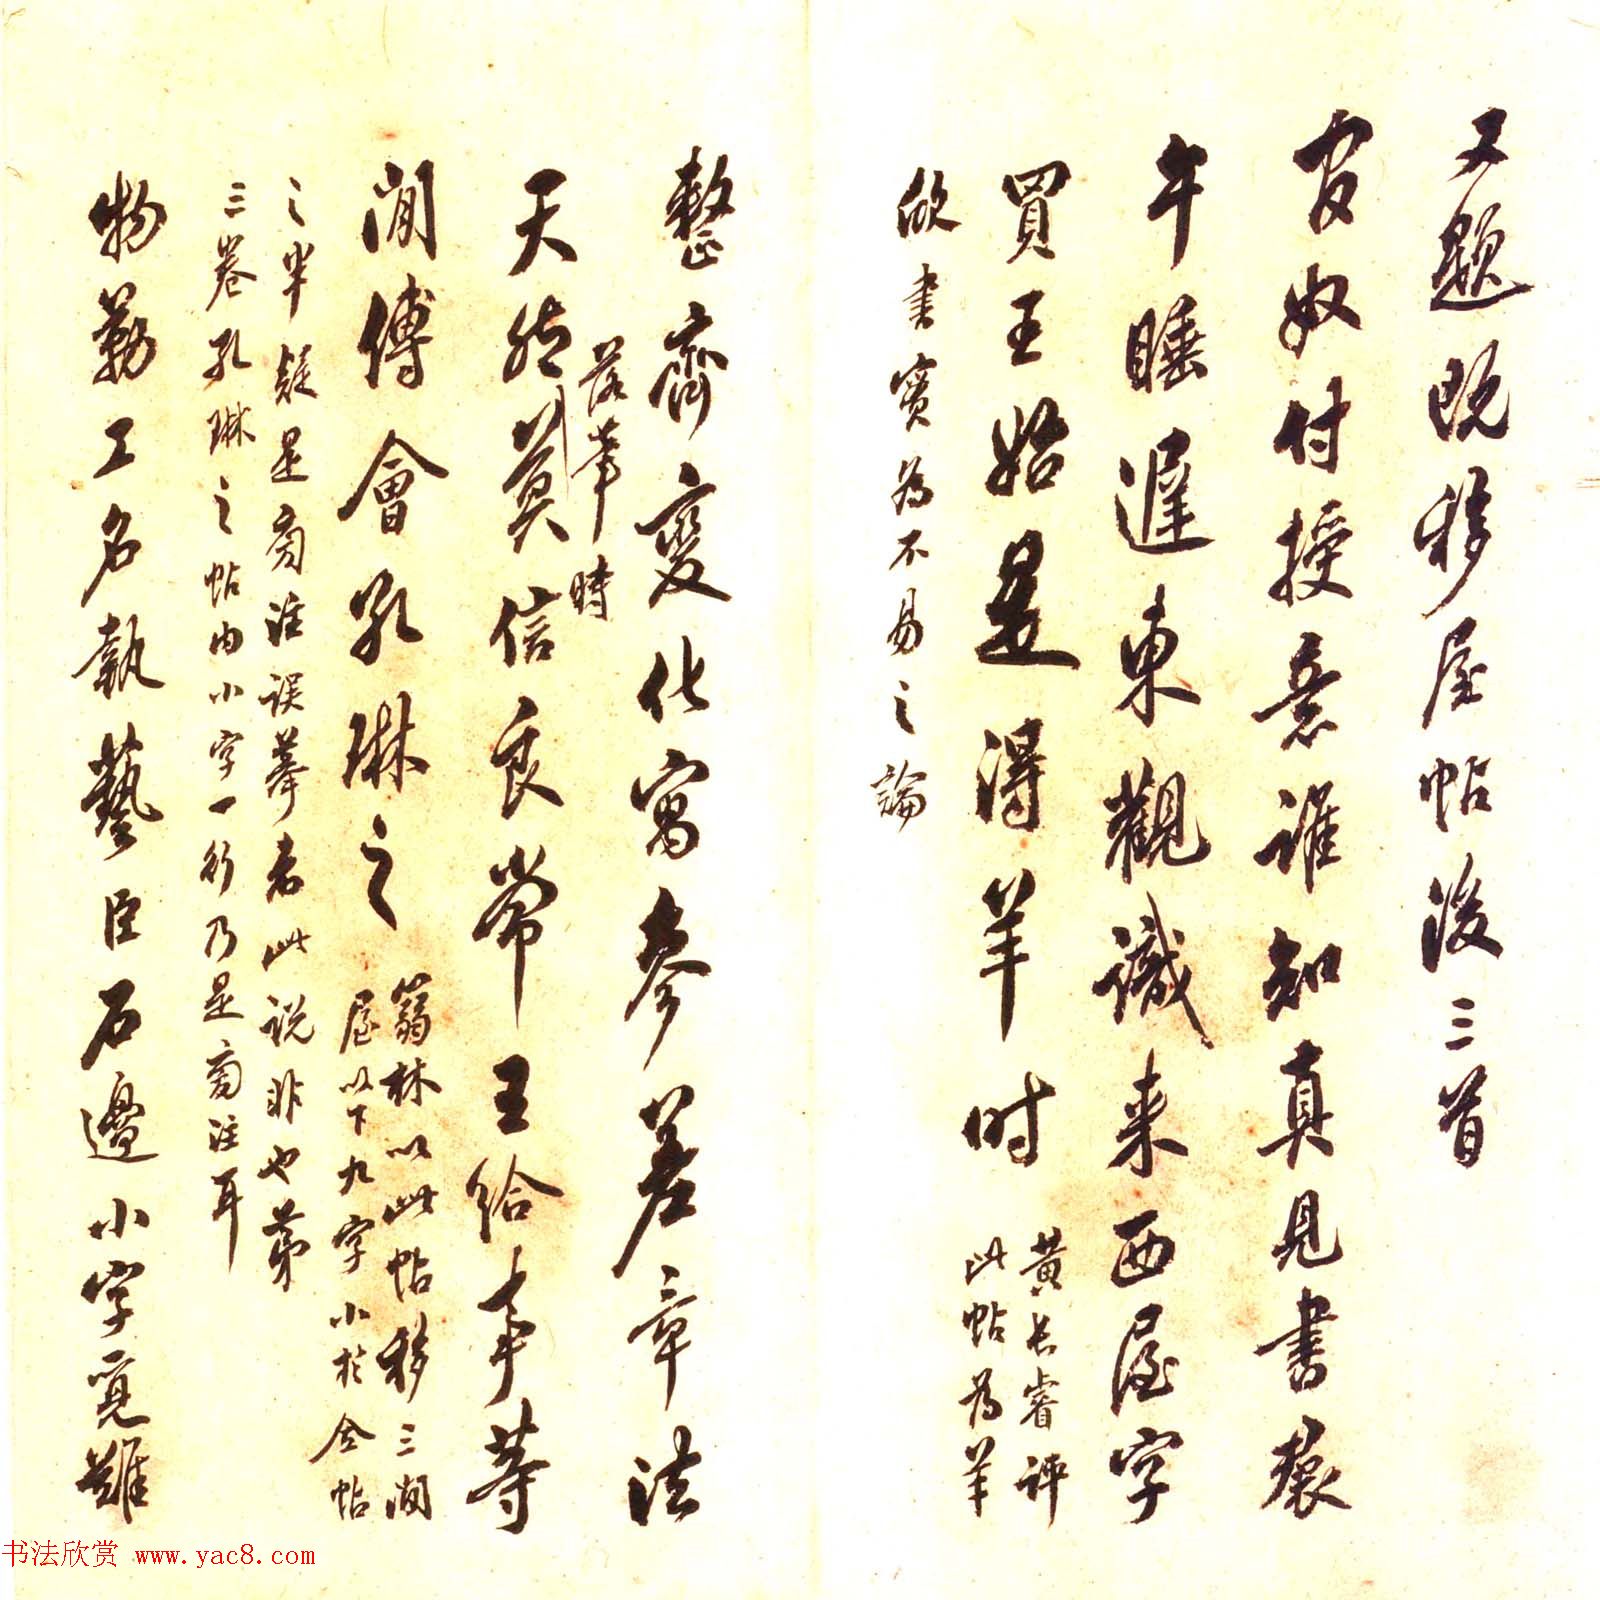 又題既移屋帖後三首
官奴付授意誰知真見書裠
午睡遲東觀識来西屋字
買王始是得羊时
黃長睿評
此帖為羊
欣書實為不易之論
整齊變化寓參差章法
天然落筆時莫信良常王給事等
閒傅會孔琳之
蒻林以此帖移三閒
屋以下九字小於全帖
之半疑是旁注误摹者此说非也苐
三卷孔琳之帖内小字一行乃是旁注耳
物勒工名執藝臣石邊小字覓難
书法欣赏 www.yac8.com